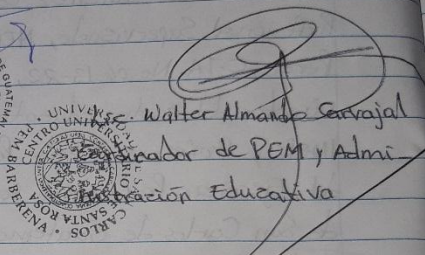 Msc. Walter Almando Carvajal
Coordinador de PEM y Admi-
nistración Educativa
DE GUATEMALA
CENTRO UNIVERSITARIO
SANTA ROSA
CARLOS
BARBERENA